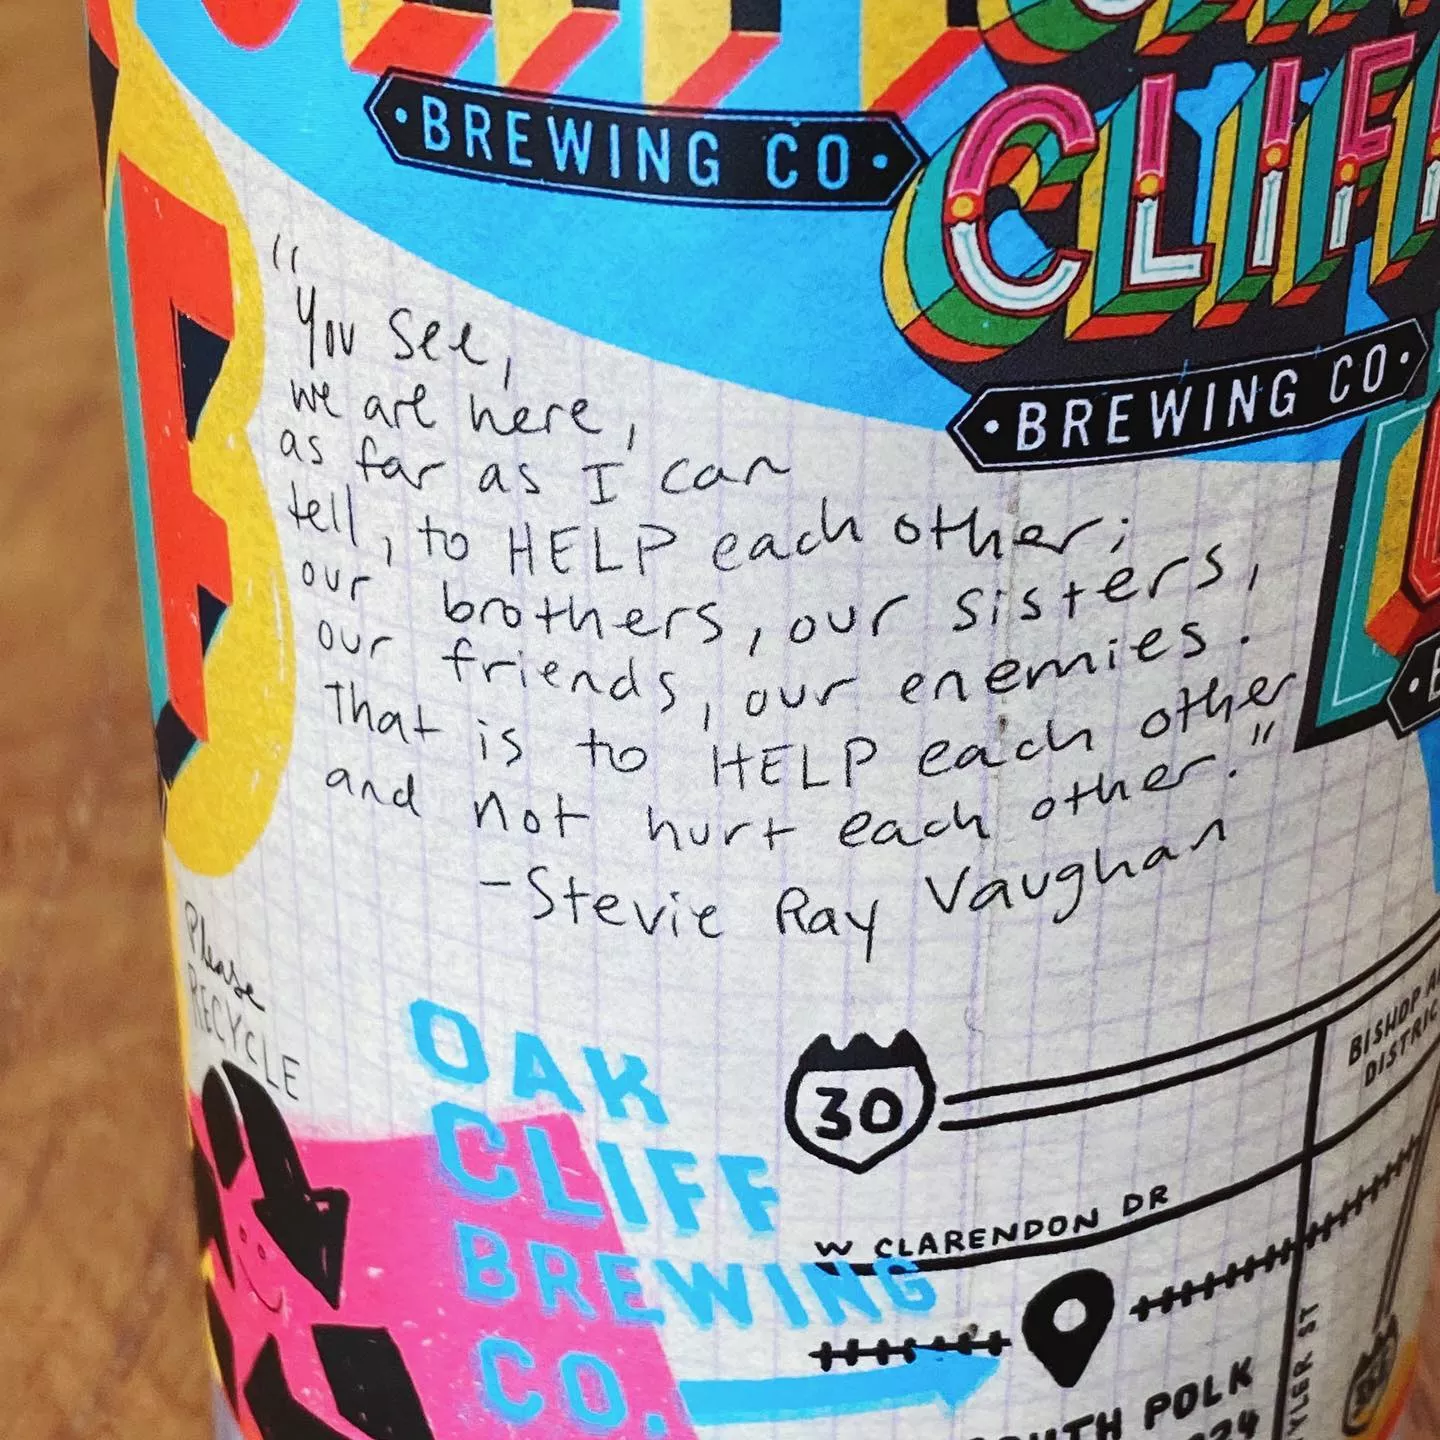 BREWING CO
CLIF
BREWING CO
"You see,
we are here,
as far as I can
tell, to HELP each other;
our brothers, our sisters,
our friends, our enemies.
That is to HELP each other
and not hurt each other."
-Stevie Ray Vaughan
Please
RECYCLE
OAK
CLIFF
BREWING
CO.
30
BISHOP
W CLARENDON DR
POLK